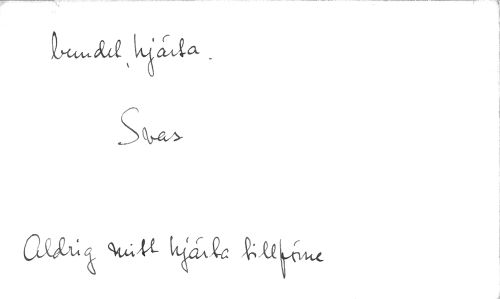 bundet, hjärta.
Svar
Aldrig mitt hjärta tillförne